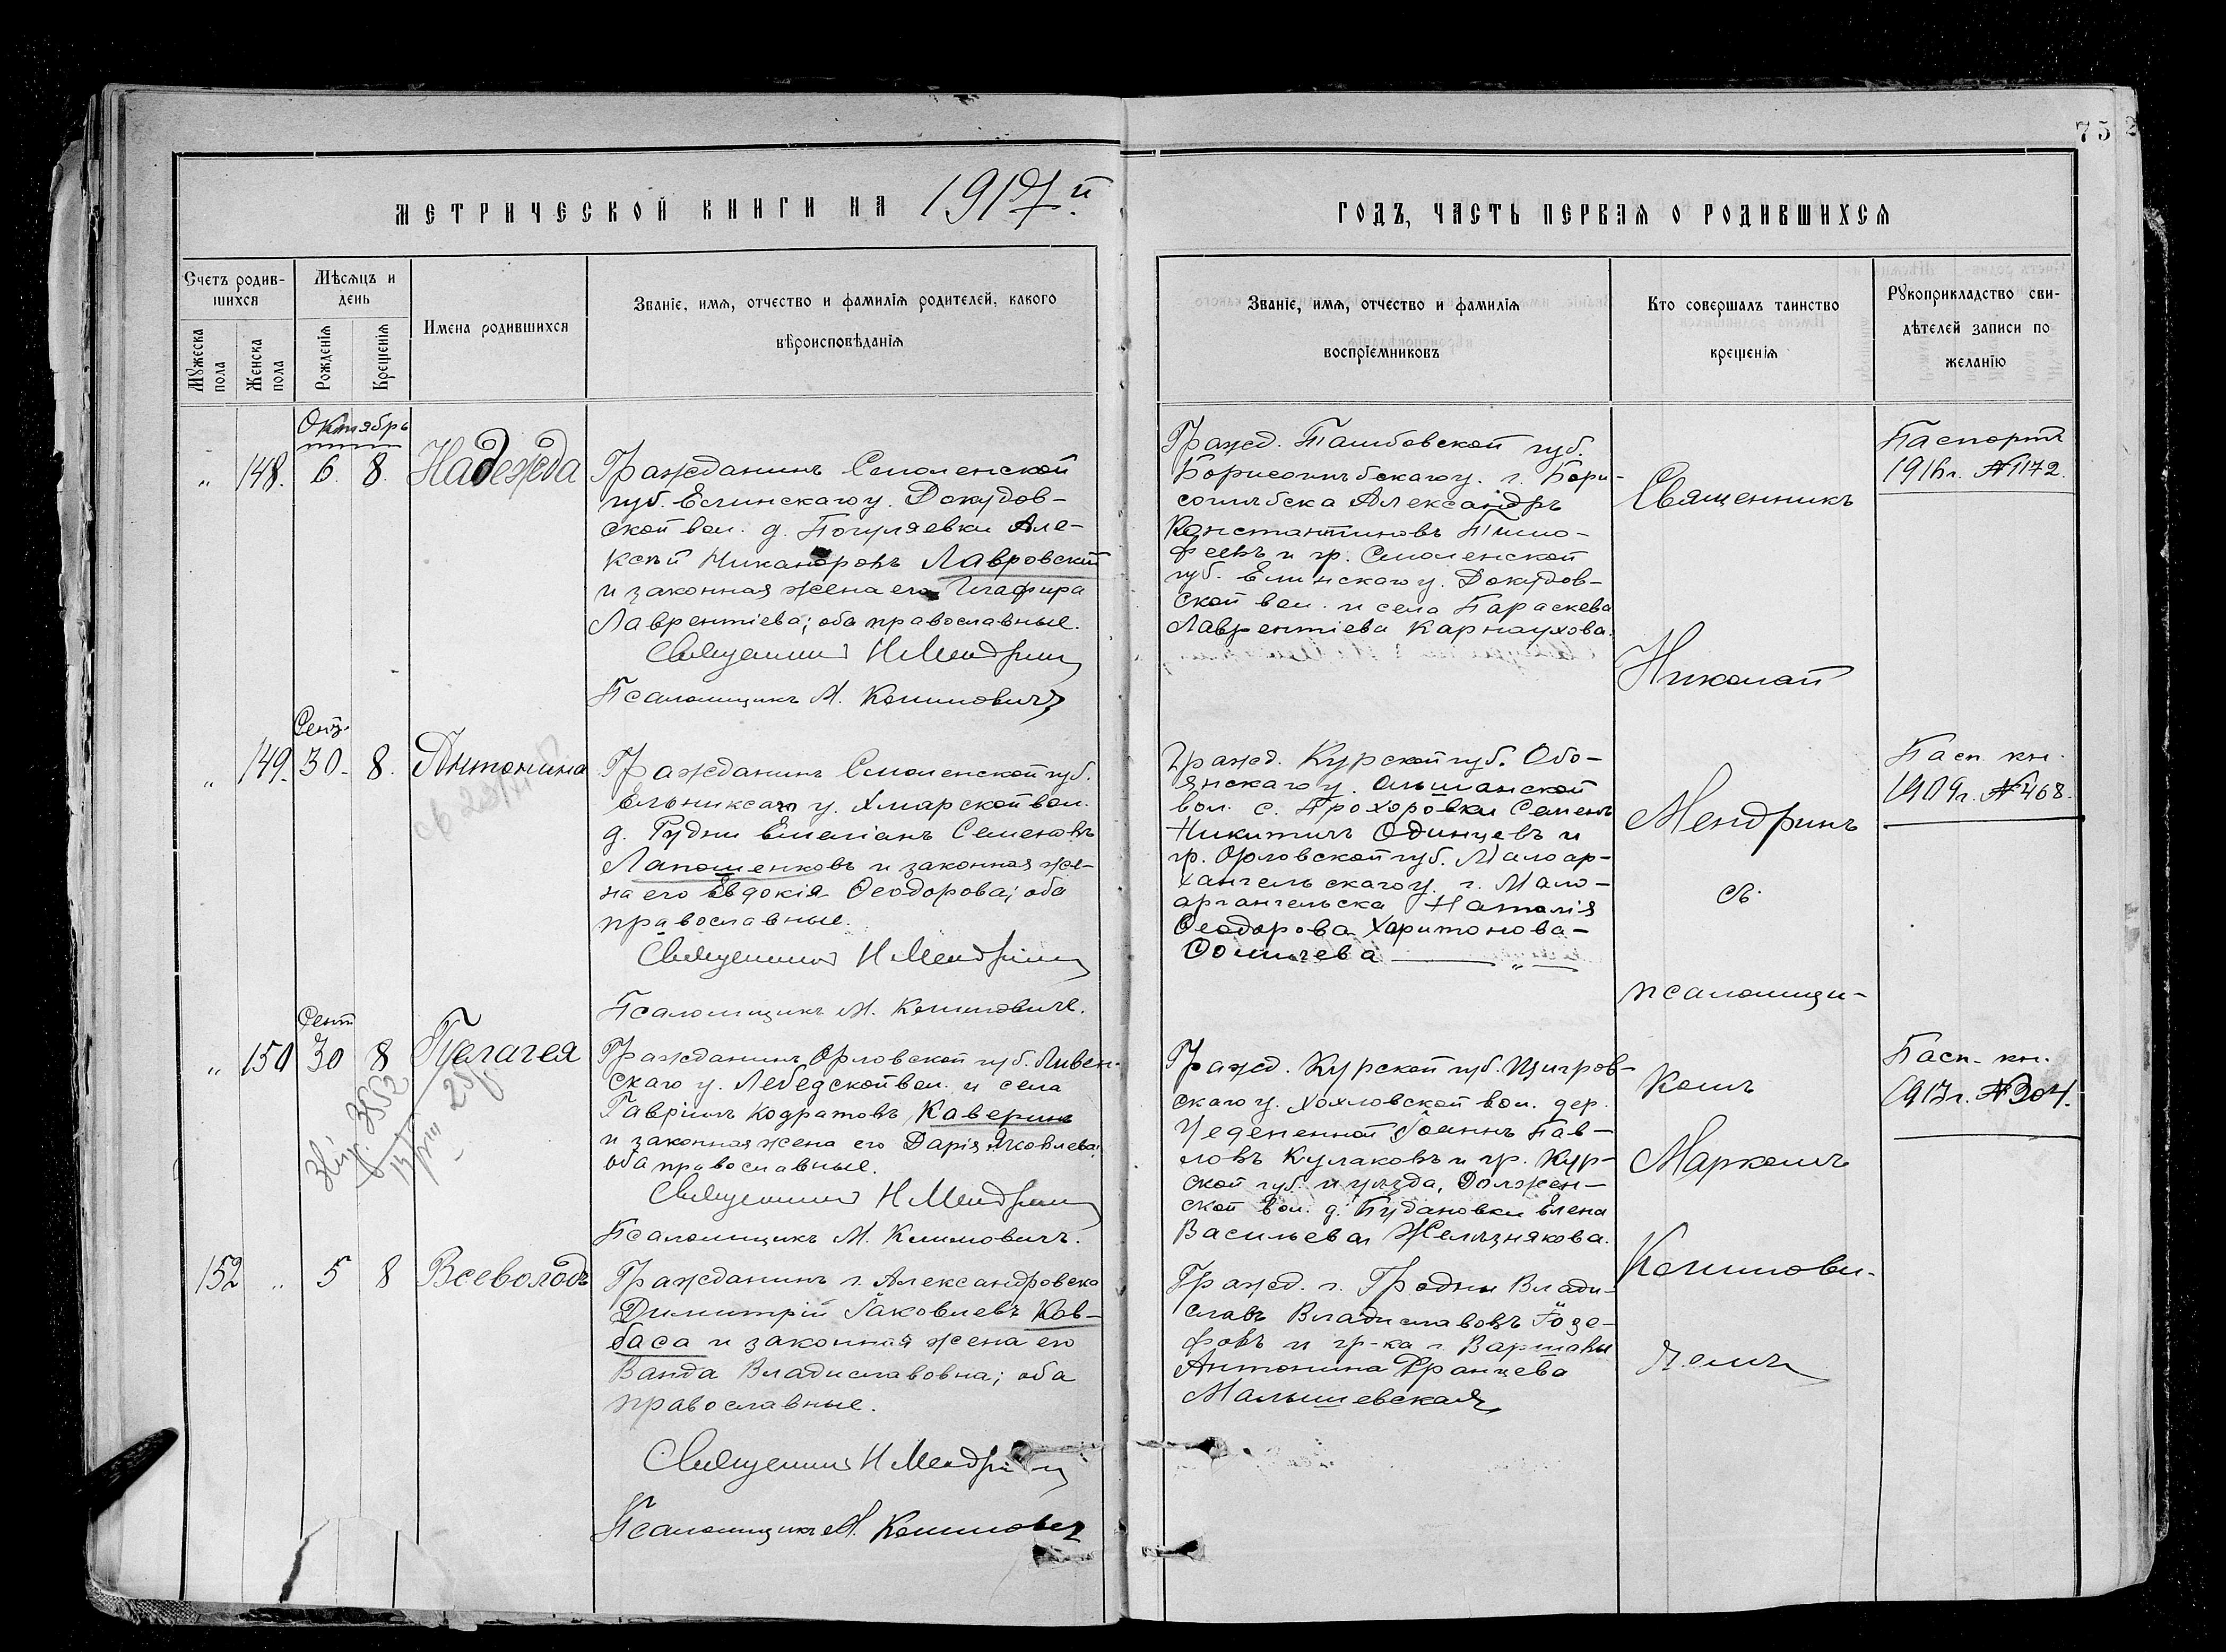 75
МЕТРИЧЕСКОЙ КНИГИ НА 1917й
ГОДЪ, ЧАСТЬ ПЕРВАЯ О РОДИВШИХСЯ
Счетъ родив-
шихся
Мужеска
пола
Женска
пола
Мѣсяцъ и
день
Рожденія
Крещенія
Имена родившихся
Званіе, имя, отчество и фамилія родителей, какого
вѣроисповѣданія
Званіе, имя, отчество и фамилія
воспріемниковъ
Кто совершалъ таинство
крещенія
Рукоприкладство сви-
дѣтелей записи по
желанію
Октябрь
" 148. 6. 8. Надежда
Гражданинъ Смоленской
губ. Елинскаго у. Докудов-
ской вол. д. Погуляевки Але-
ксѣй Никаноровъ Лавровскій
и законная жена его Глафира
Лаврентіева; оба православные.
Священникъ Н Мендринъ
Псаломщикъ М. Компловичъ
Гражд. Тамбовской губ.
Борисоглѣбскаго у. г. Бори-
соглѣбска Александръ
Константиновъ Тимо-
феевъ и гр. Смоленской
губ. Елинскаго у. Докудов-
ской вол. и села Параскева
Лаврентіева Карнаухова.
Паспортъ
1916 г. № 1172.
Сент.
" 149. 30. 8. Антонина
Гражданинъ Смоленской губ.
Ельникскаго у. Хмарской вол.
д. Рудни Емеліанъ Семеновъ
Лапошенковъ и законная же-
на его Евдокія Ѳеодорова; оба
православные.
Священникъ Н Мендринъ
Псаломщикъ М. Компловичъ.
Гражд. Курской губ. Обо-
янскаго у. Ольшанской
вол. с. Прохоровки Семенъ
Никитичъ Одинцевъ и
гр. Орловской губ. Малоар-
хангельскаго у. г. Мало-
архангельска Наталія
Ѳеодорова Харитонова-
Ѳомичева — " —
Пасп. кн.
1909 г. № 468.
Сент
" 150 30 8 Пелагея
Гражданинъ Орловской губ. Ливен-
скаго у. Лебедской вол. и села
Гавріилъ Кодратовъ Каверинъ
и законная жена его Дарія Яковлева;
оба православные.
Священникъ Н Мендринъ
Псаломщикъ М. Компловичъ.
Гражд. Курской губ. Щигров-
скаго у. Хохловской вол. дер.
Іоаннъ Пав-
ловъ Кулаковъ и гр. Кур-
ской губ. и уѣзда, Должен-
ской вол. д. Будановки Елена
Васильева Желѣзнякова.
Пасп. кн.
1917 г. № 304.
152 " 5 8 Всеволодъ
Гражданинъ г. Александровска
Димитрій Іаковлевъ Ков-
баса и законная жена его
Ванда Владиславовна; оба
православные.
Священникъ Н Мендринъ
Псаломщикъ М. Компловичъ
Гражд. г. Гродны Влади-
славъ Владиславовъ Іозе-
фовъ и гр-ка г. Варшавы
Антонина Францева
Малышевская
Священникъ
Николай
Мендринъ
съ
псаломщи-
комъ
Маркомъ
Компlови-
чемъ